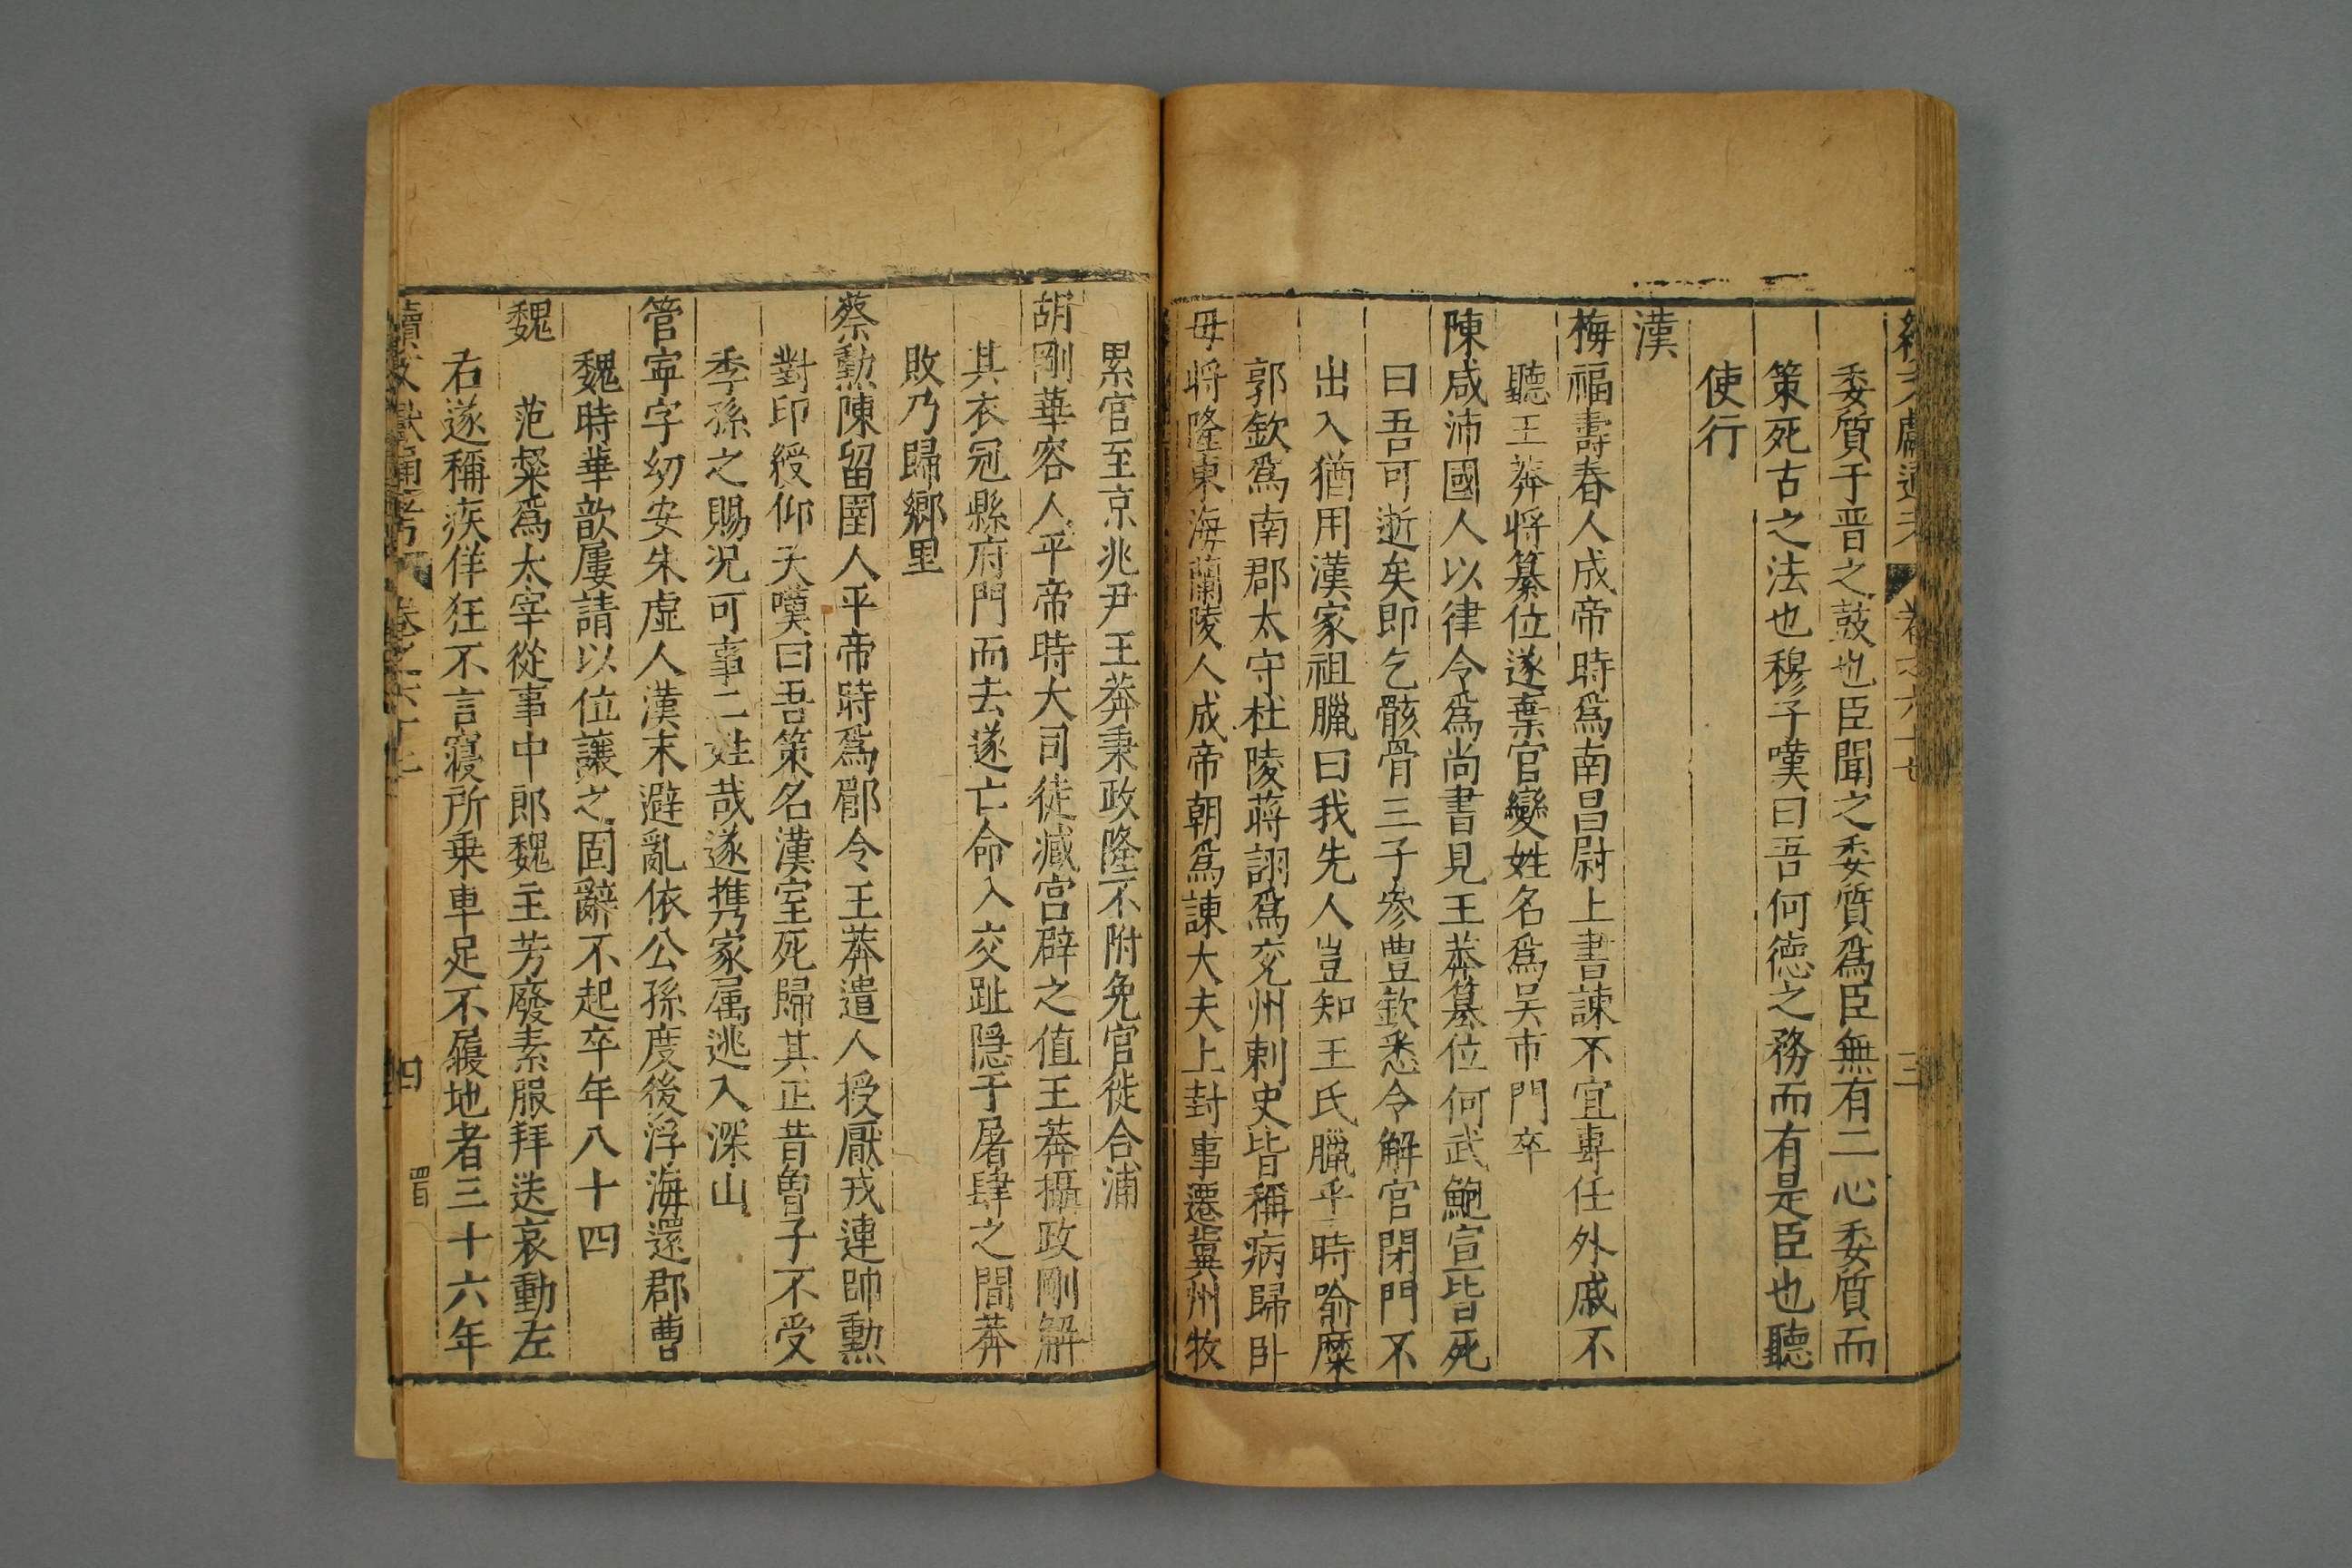 續文獻通考 卷之六十七 三
委質于晋之鼓也臣聞之委質爲臣無有二心委質而
策死古之法也穆子嘆曰吾何德之務而有是臣也聽
使行
漢
梅福壽春人成帝時爲南昌尉上書諫不宜專任外戚不
聽王莽將簒位遂棄官變姓名爲吴市門卒
陳咸沛國人以律令爲尚書見王莽簒位何武鮑宣皆死
曰吾可逝矣即乞骸骨三子參豊欽悉令解官閉門不
出入猶用漢家祖臘曰我先人豈知王氏臘乎時喻麋
郭欽爲南郡太守杜陵蔣詡爲兖州刺史皆稱病歸卧
毋將隆東海蘭陵人成帝朝爲諫大夫上封事遷冀州牧
累官至京兆尹王莽秉政隆不附免官徙合浦
胡剛華容人平帝時大司徒臧宫辟之值王莽攝政剛解
其衣冠縣府門而去遂亡命入交趾隱于屠肆之間莽
敗乃歸鄉里
蔡勲陳留圉人平帝時爲郿令王莽遣人授厭戎連帥勲
對印綬仰天嘆曰吾策名漢室死歸其正昔曾子不受
季孫之賜况可事二姓哉遂携家属逃入深山
管寜字幼安朱虚人漢末避亂依公孫度後浮海還郡曹
魏時華歆屢請以位讓之固辭不起卒年八十四
魏 范粲爲太宰從事中郎魏主芳廢素服拜送哀動左
右遂稱疾佯狂不言寢所乗車足不履地者三十六年
續文獻通考 卷之六十七 四